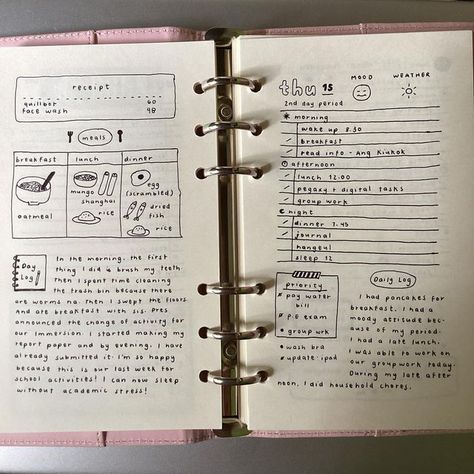 receipt
quillbot 60
face wash 98
meals
breakfast lunch dinner
oatmeal
mungo
shanghai
rice
egg
(scrambled)
dried
fish
rice
Day
Log
In the morning, the first
thing I did is brush my teeth.
Then I spent time cleaning
the trash bin because there
are worms na. Then I swept the floors
and ate breakfast with sis. Pres
announced the change of activity for
our immersion. I started making my
report paper and by evening, I have
already submitted it. I'm so happy
because this is our last week for
school activities! I can now sleep
without academic stress!
thu 15 MOOD WEATHER
2nd day period
morning
wake up 8.30
breakfast
read info - Ang Kiukok
afternoon
lunch 12:00
pegaxy + digital tasks
group work
night
dinner 7.45
journal
hangeul
sleep 12
priority
pay water
bill
P.E exam
group wrk
wash bra
update: ipad
Daily Log
I had pancakes for
breakfast. I had a
moody attitude bec-
ause of my period.
I had a late lunch.
I was able to work on
our groupwork today.
During my late after
noon, I did household chores.